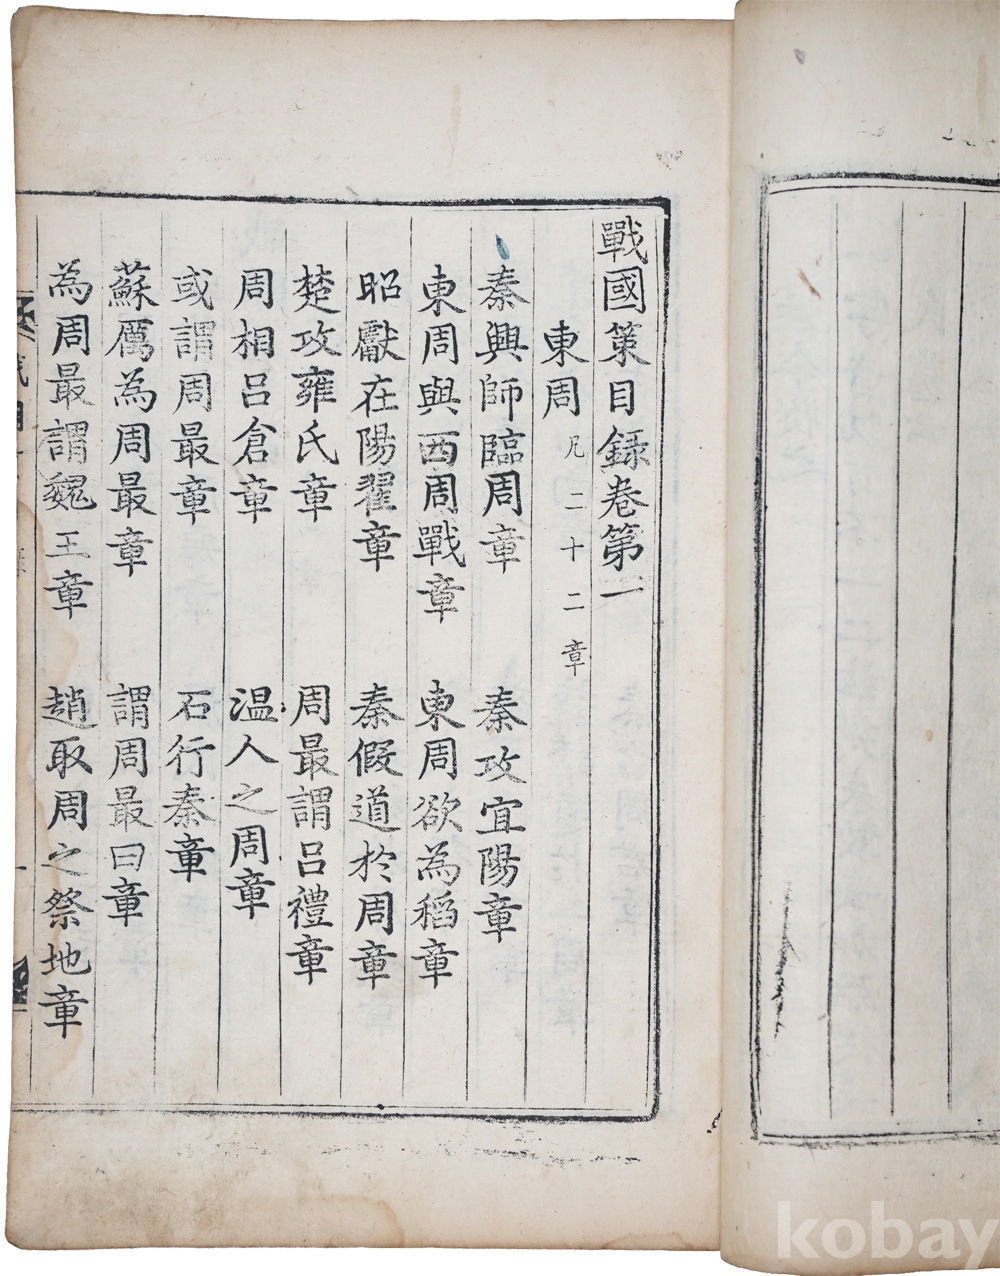 戰國策目錄卷第一
東周 凡二十二章
秦興師臨周章 秦攻宜陽章
東周與西周戰章 東周欲為稻章
昭獻在陽翟章 秦假道於周章
楚攻雍氏章 周最謂呂禮章
周相呂倉章 温人之周章
或謂周最章 石行秦章
蘇厲為周最章 謂周最曰章
為周最謂魏王章 趙取周之祭地章
kobay